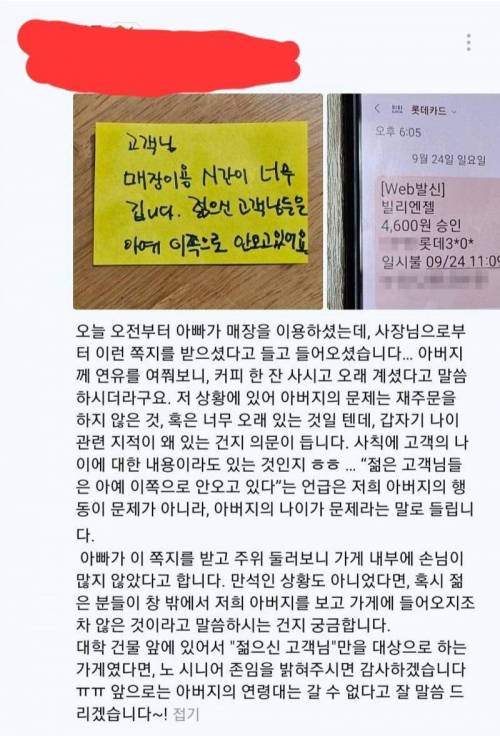 고객님
매장이용 시간이 너무
깁니다. 젊으신 고객님들은
아예 이쪽으로 안오고있어요
롯데카드
오후 6:05
9월 24일 일요일
[Web발신]
빌리엔젤
4,600원 승인
롯데3*0*
일시불 09/24 11:09
오늘 오전부터 아빠가 매장을 이용하셨는데, 사장님으로부
터 이런 쪽지를 받으셨다고 들고 들어오셨습니다... 아버지
께 연유를 여쭤보니, 커피 한 잔 사시고 오래 계셨다고 말씀
하시더라구요. 저 상황에 있어 아버지의 문제는 재주문을
하지 않은 것, 혹은 너무 오래 있는 것일 텐데, 갑자기 나이
관련 지적이 왜 있는 건지 의문이 듭니다. 사칙에 고객의 나
이에 대한 내용이라도 있는 것인지 ㅎㅎ ... “젊은 고객님들
은 아예 이쪽으로 안오고 있다”는 언급은 저희 아버지의 행
동이 문제가 아니라, 아버지의 나이가 문제라는 말로 들립니
다.
아빠가 이 쪽지를 받고 주위 둘러보니 가게 내부에 손님이
많지 않았다고 합니다. 만석인 상황도 아니었다면, 혹시 젊
은 분들이 창 밖에서 저희 아버지를 보고 가게에 들어오지조
차 않은 것이라고 말씀하시는 건지 궁금합니다.
대학 건물 앞에 있어서 "젊으신 고객님"만을 대상으로 하는
가게였다면, 노 시니어 존임을 밝혀주시면 감사하겠습니다
ㅠㅠ 앞으로는 아버지의 연령대는 갈 수 없다고 잘 말씀 드
리겠습니다~! 접기